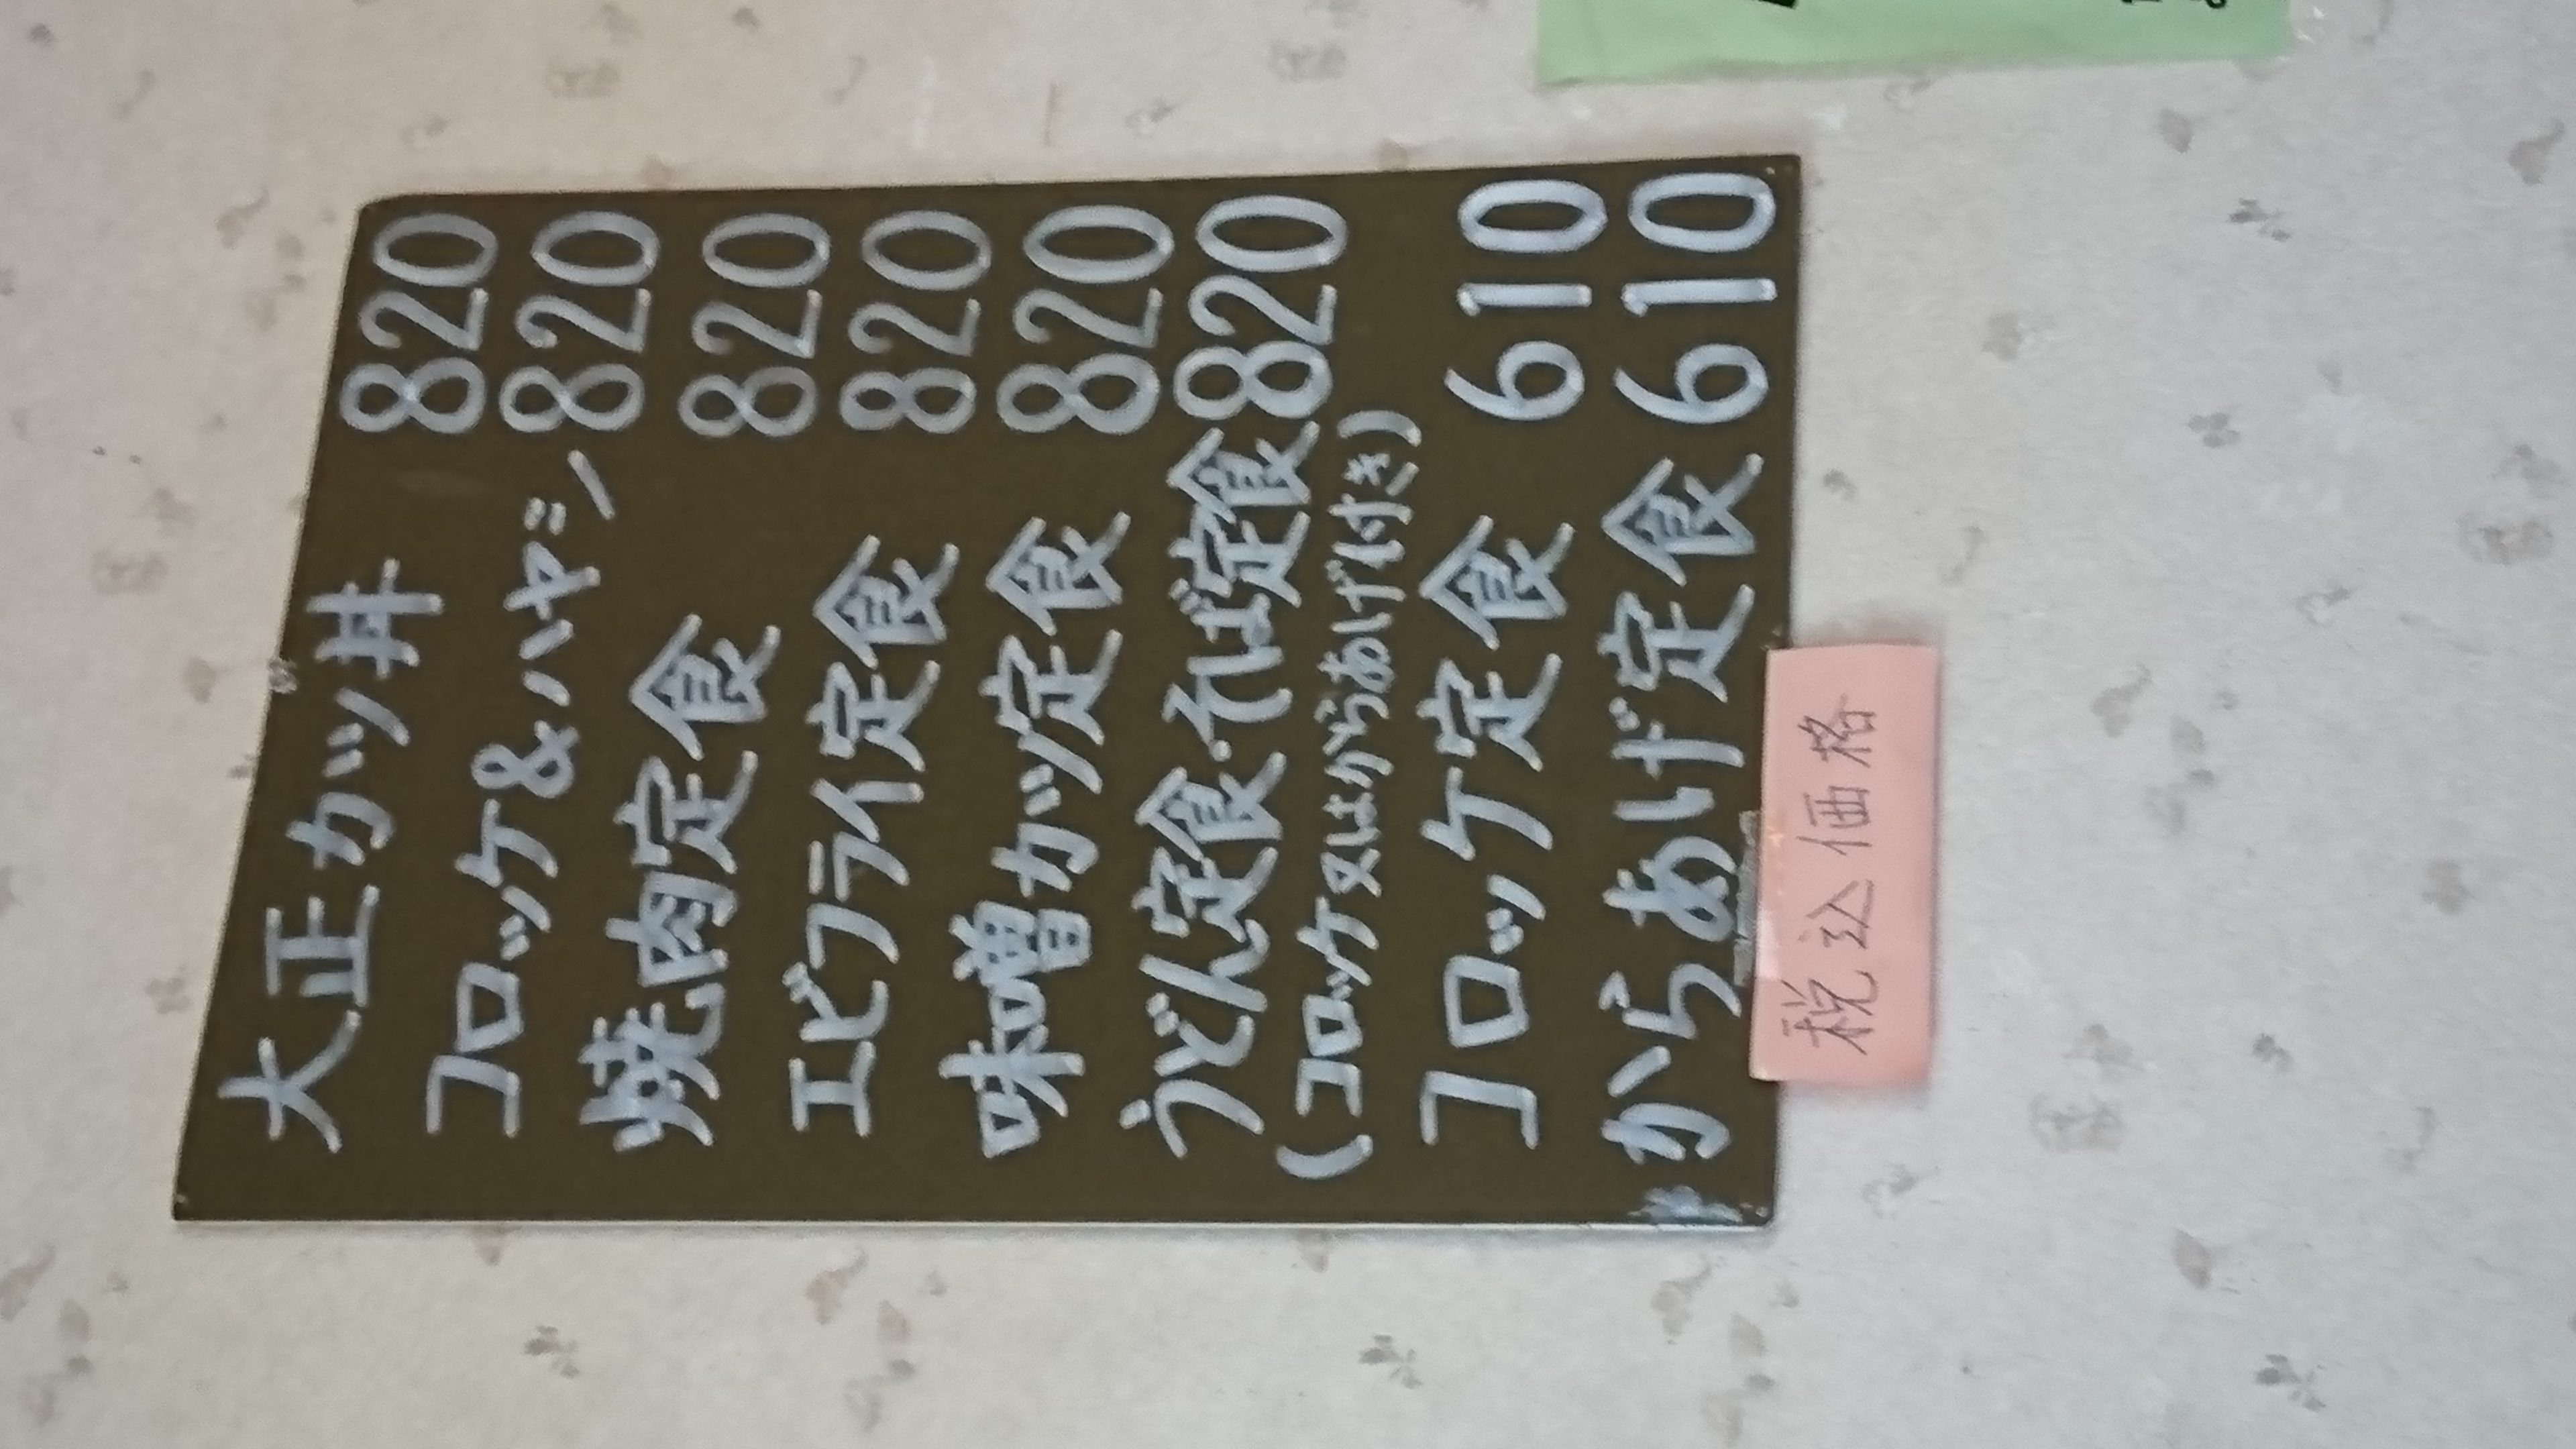 大正カツ丼 820
コロッケ&ハヤシ 820
焼肉定食 820
エビフライ定食 820
味噌カツ定食 820
うどん定食・そば定食 820
(コロッケ又はからあげ付き)
コロッケ定食 610
からあげ定食 610
税込価格